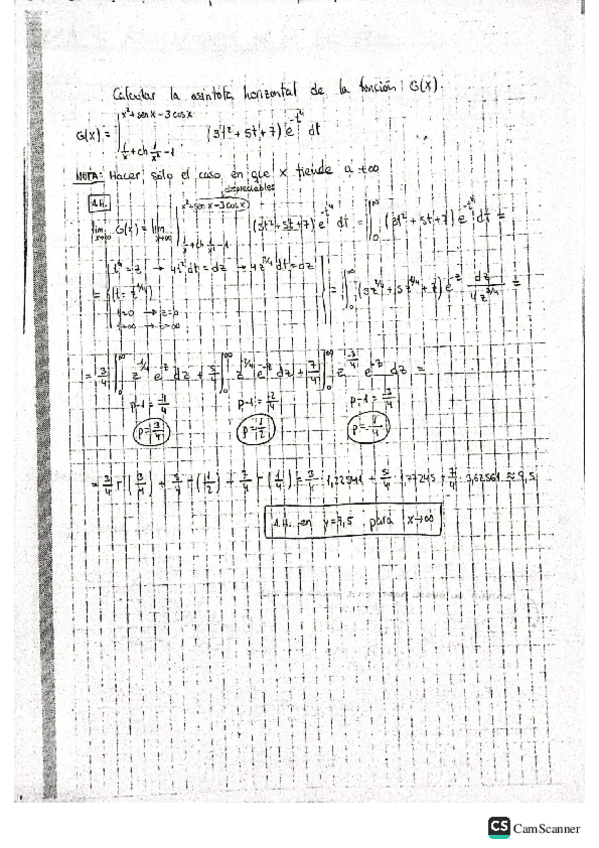 Calcular la asíntota horizontal de la función: G(x).
G(x) = ∫_{1/x + ch 1/x² - 1}^{x² + sen x - 3 cos x} (3t² + 5t + 7) e^{-t⁴} dt
NOTA: Hacer sólo el caso en que x tiende a +∞
despreciables
A.H.
lim_{x→∞} G(x) = lim_{x→∞} ∫_{1/x + ch 1/x² - 1}^{x² + sen x - 3 cos x} (3t² + 5t + 7) e^{-t⁴} dt = ∫_0^∞ (3t² + 5t + 7) e^{-t⁴} dt =
= { t⁴ = z → 4t³ dt = dz → 4z^{3/4} dt = dz
t = z^{1/4}
t=0 → z=0
t=∞ → z=∞ } = ∫_0^∞ (3z^{2/4} + 5z^{1/4} + 7) e^{-z} dz / 4z^{3/4} =
= 3/4 ∫_0^∞ z^{-1/4} e^{-z} dz + 5/4 ∫_0^∞ z^{-2/4} e^{-z} dz + 7/4 ∫_0^∞ z^{-3/4} e^{-z} dz =
p-1 = -1/4 p-1 = -2/4 p-1 = -3/4
p = 3/4 p = 1/2 p = 1/4
= 3/4 Γ(3/4) + 5/4 Γ(1/2) + 7/4 Γ(1/4) = 3/4 · 1,22541 + 5/4 · 1,77245 + 7/4 · 3,62561 ≈ 9,5
A.H. en y = 9,5 para x→∞
CS CamScanner